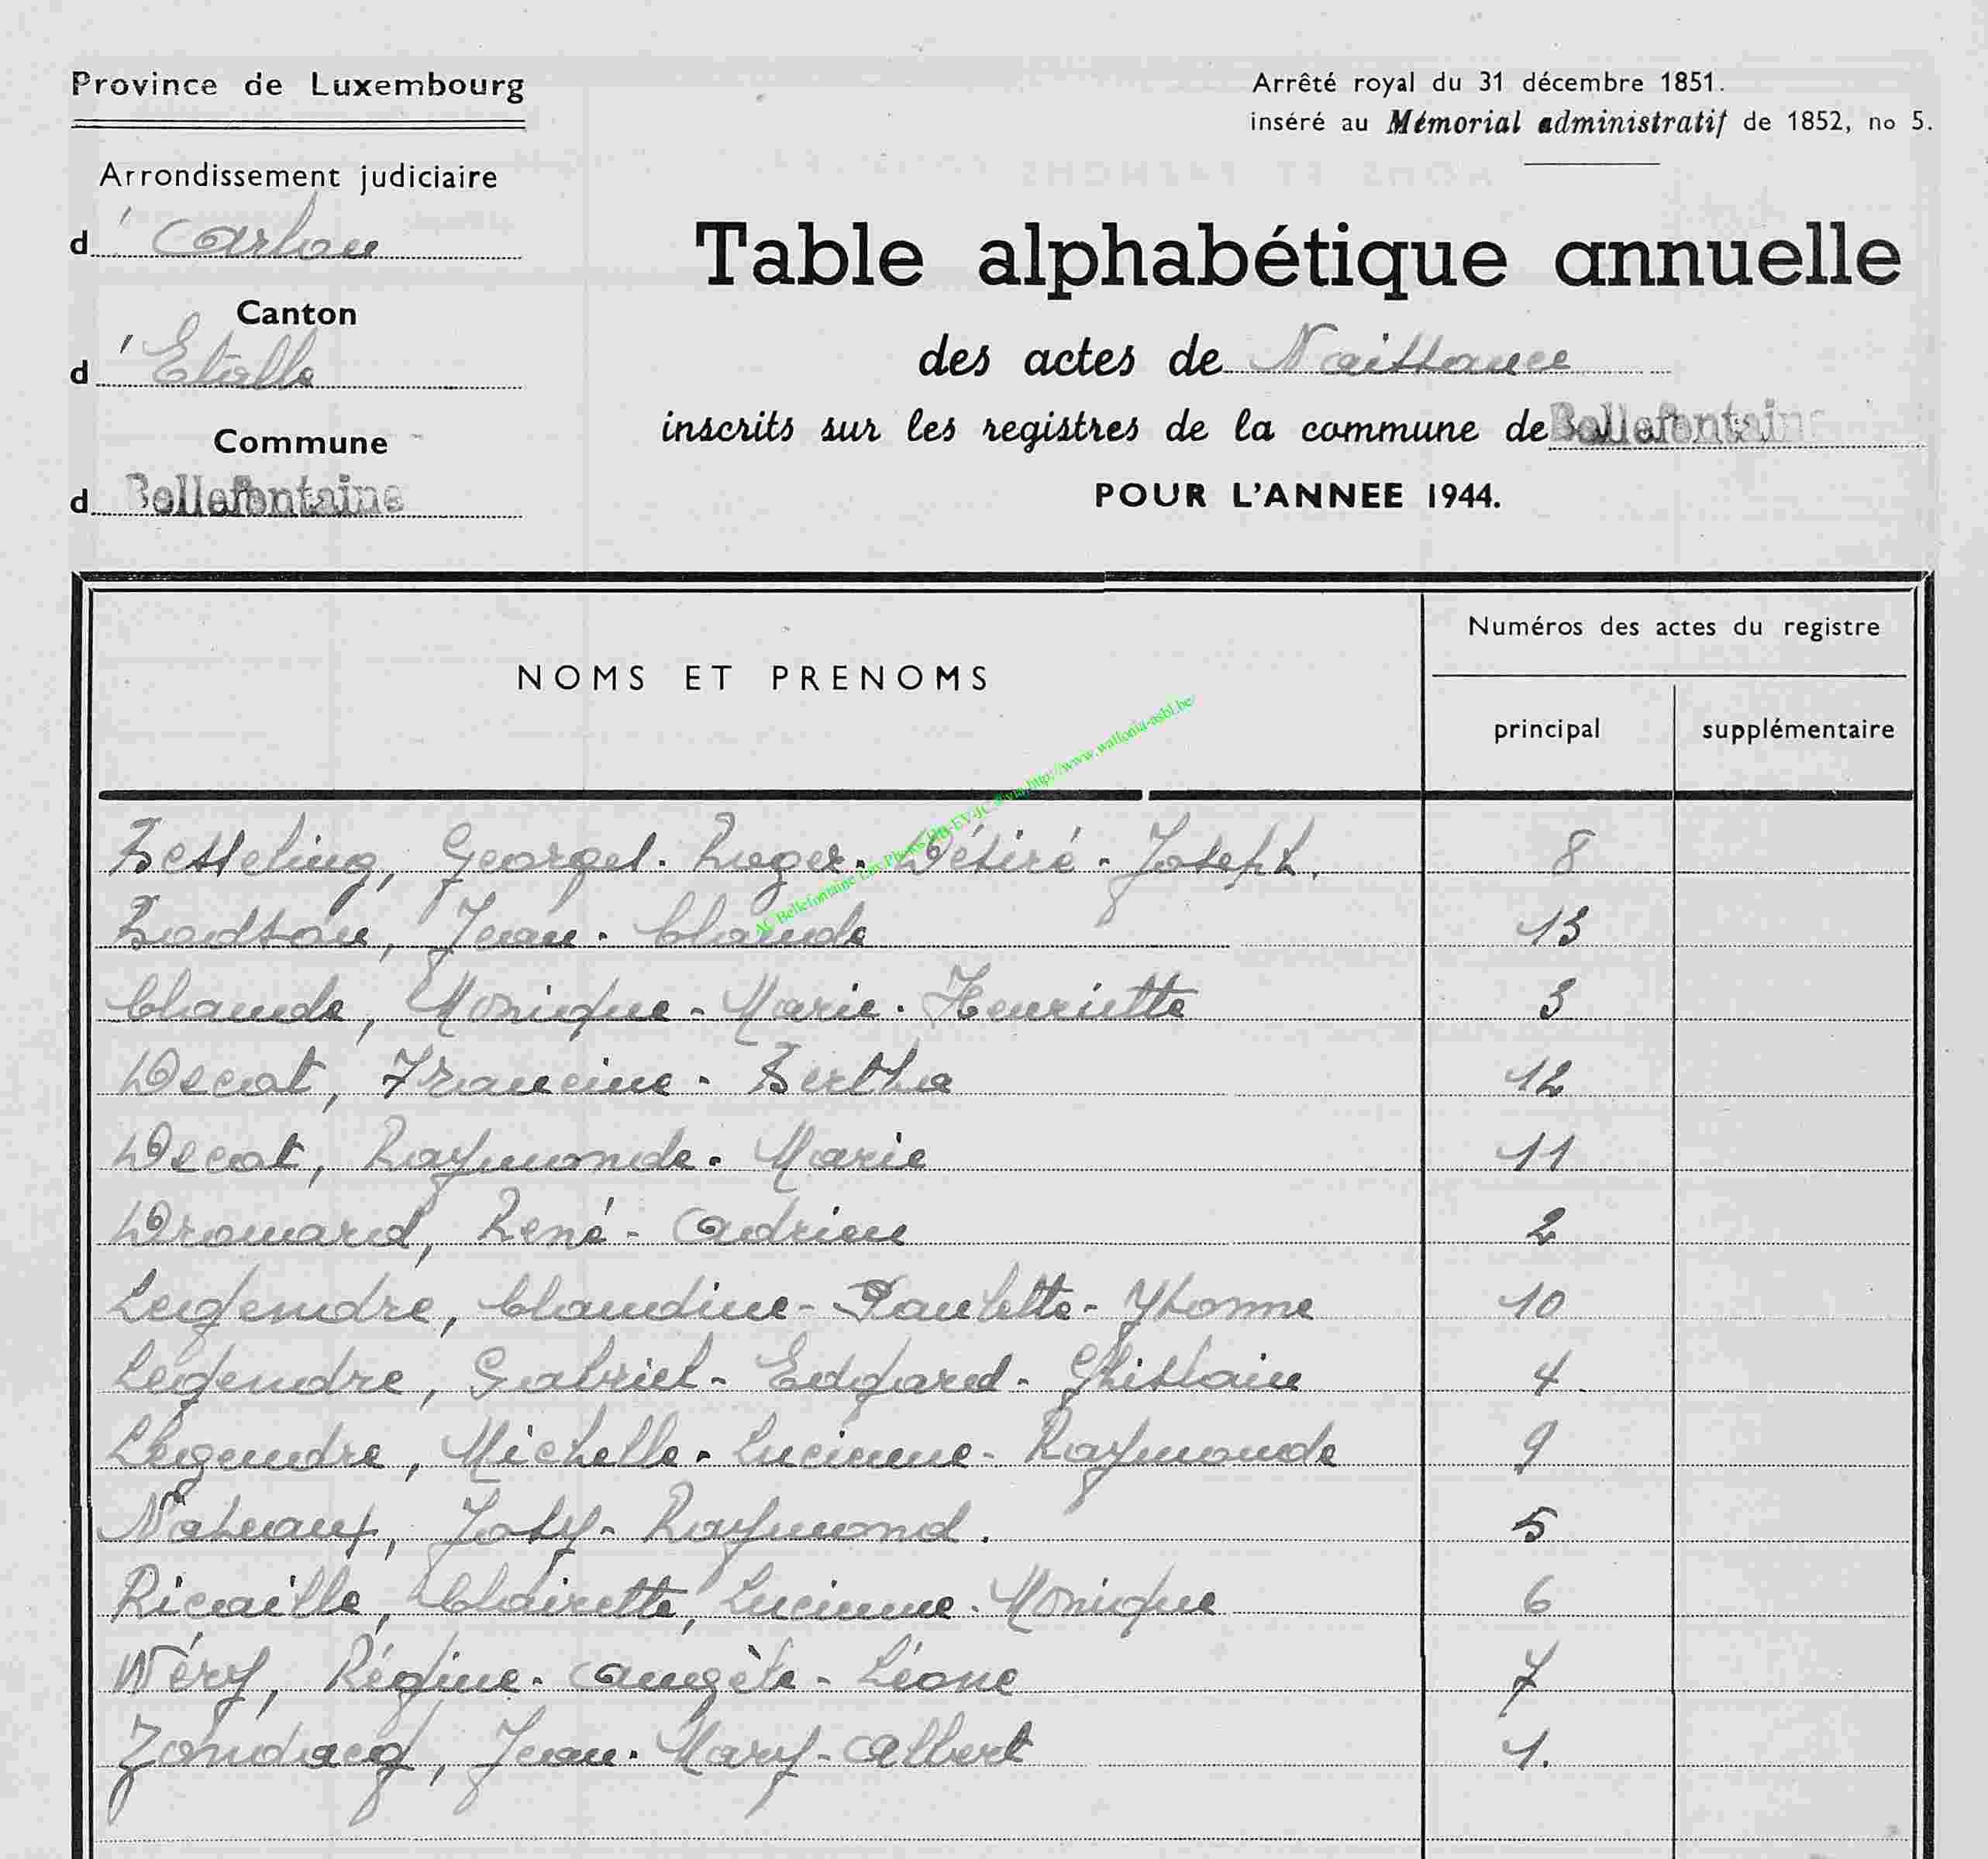 Province de Luxembourg
Arrêté royal du 31 décembre 1851.
inséré au Mémorial administratif de 1852, no 5.
Arrondissement judiciaire
d'Arlon
Canton
d'Etalle
Commune
d Bellefontaine
Table alphabétique annuelle
des actes de Naissance
inscrits sur les registres de la commune de Bellefontaine
POUR L'ANNEE 1944.
NOMS ET PRENOMS
Numéros des actes du registre
principal
supplémentaire
Besseling, Georges. Roger. Désiré - Joseph. 8
Bodson, Jean. Claude 13
Claude, Monique - Marie. Henriette 3
Decat, Francine. Bertha 12
Decat, Raymonde. Marie 11
Dromard, René - Adrien 2
Legendre, Claudine - Paulette - Yvonne 10
Legendre, Gabriel - Edgard - Ghislain 4
Legendre, Michelle. Lucienne - Raymonde 9
Josy - Raymond. 5
Ricaille, Clairette, Lucienne. Monique 6
Wéry, Régine. Angèle - Léone 7
Zondacq, Jean. Mary - Albert 1.
http://www.wallonia-asbl.be/